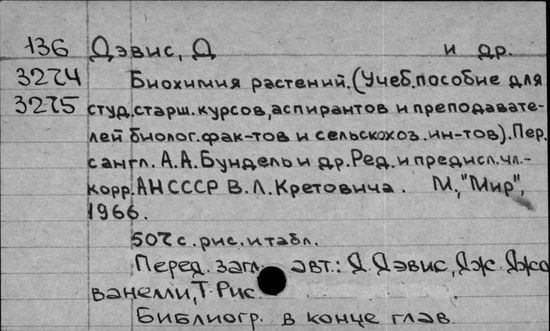 136 Дэвис, Д и др.
3274 Биохимия растений. (Учеб. пособие для
3275 студ. старш. курсов, аспирантов и преподавате-
лей биолог. фак-тов и сельскохоз. ин-тов). Пер.
с англ. А.А. Бундель и др. Ред. и предисл. чл.-
корр. АН СССР В.Л. Кретовича. М., "Мир",
1966.
507 с. рис. и табл.
Перед. загл. авт.: Д. Дэвис, Дж. Джо
ванелли, Т. Рис.
Библиогр. в конце глав